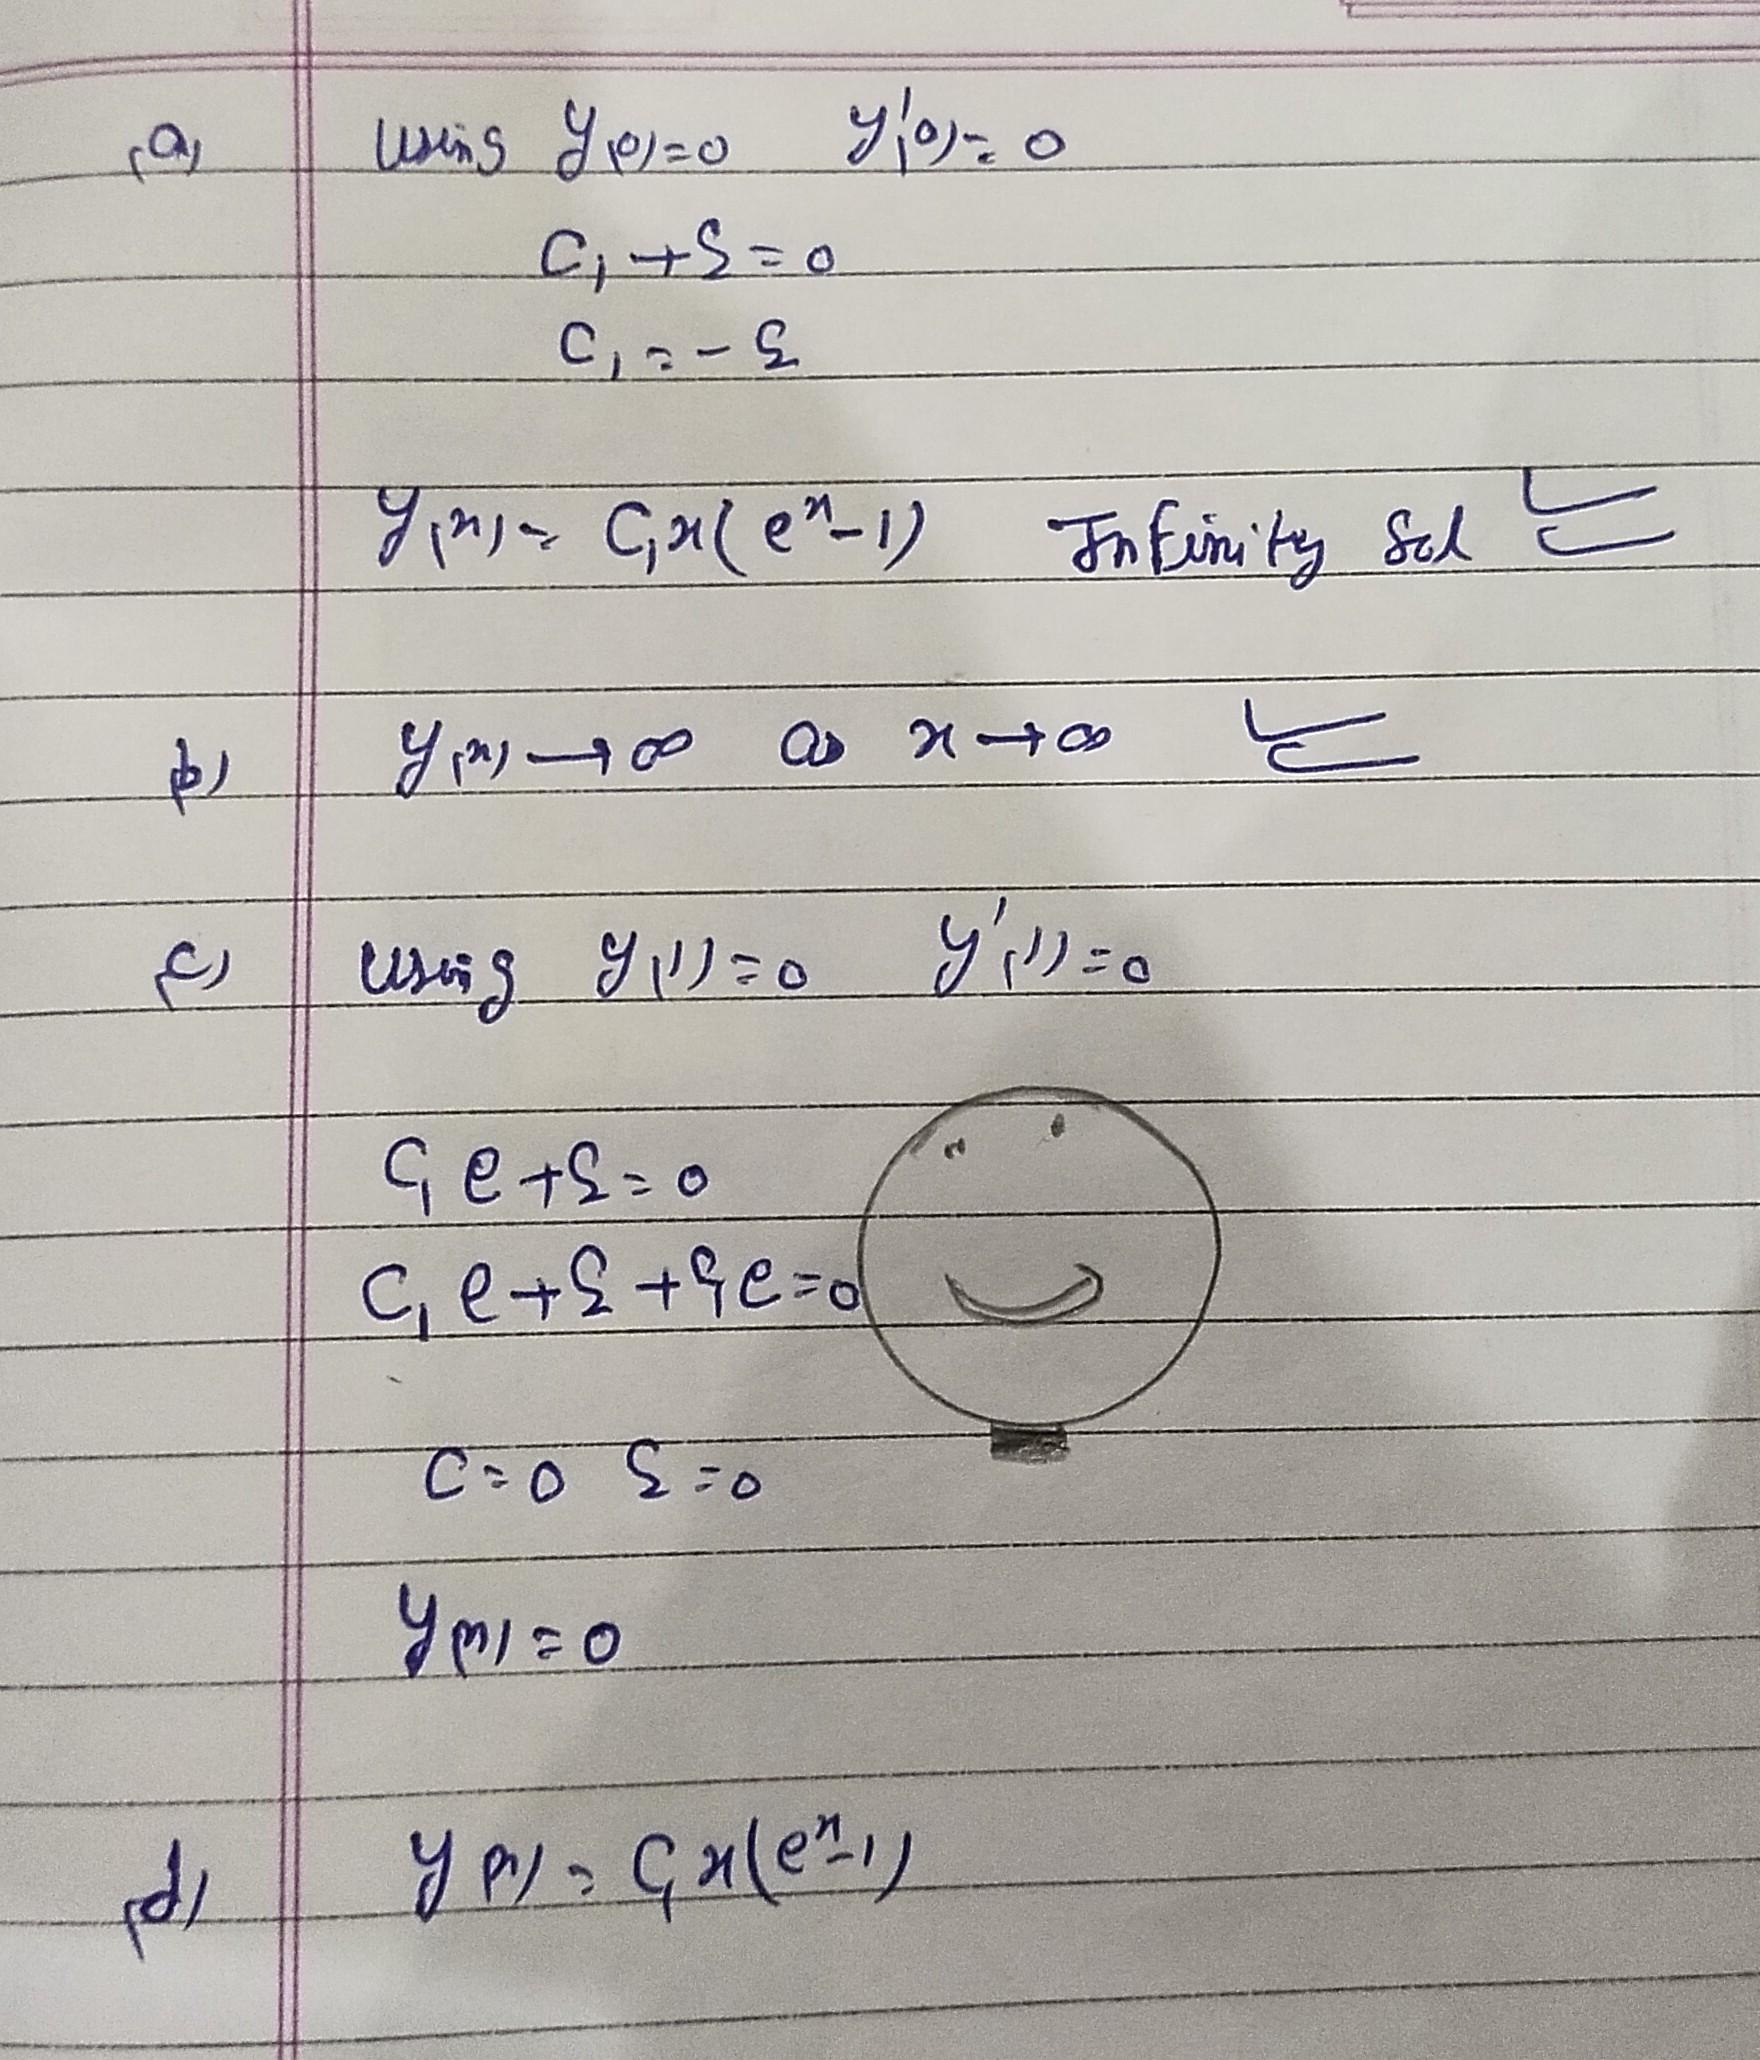 (a) Using y(0)=0 y'(0)=0
C₁+C₂=0
C₁=-C₂
y(x)= C₁x(eˣ-1) Infinity Sol
(b) y(x)→∞ as x→∞
(c) Using y(1)=0 y'(1)=0
C₁e+C₂=0
C₁e+C₂+C₁e=0
C=0 C₂=0
y(x)=0
(d) y(x)= C₁x(eˣ-1)